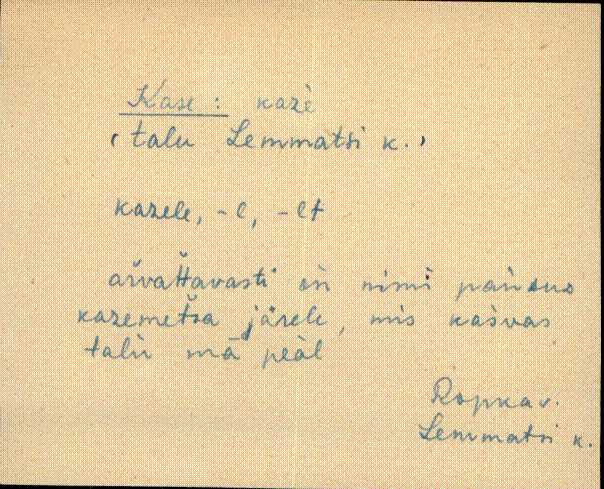 Kase : kazè
(talu Lemmatsi k.)
kazele, -l, -lt
arvattavasti on nimi
kazemetsa järele, mis kaśvas
talu mā peàl
Ropka v.
Lemmatsi k.